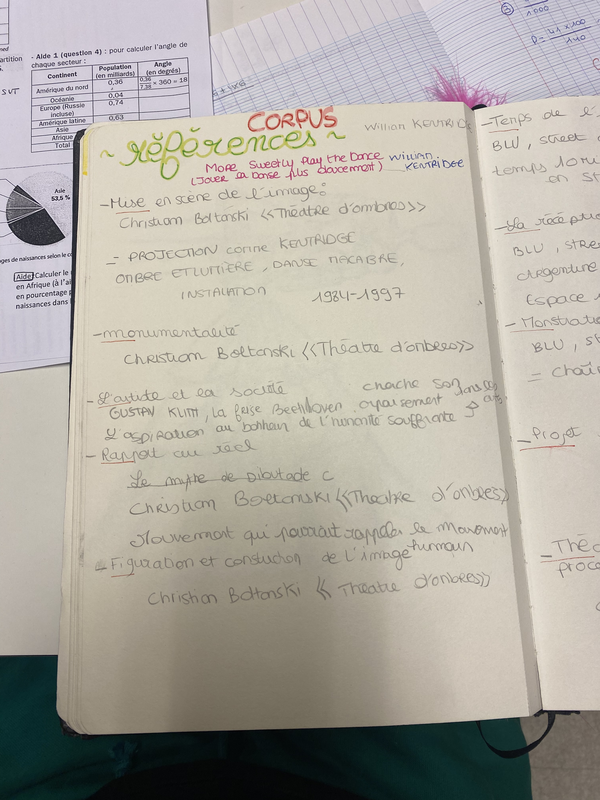 - Aide 1 (question 4) : pour calculer l'angle de
chaque secteur :
Continent Population (en milliards) Angle (en degrés)
Amérique du nord 0,36 0,36 / 7,38 × 360 = 18
Océanie 0,04
Europe (Russie incluse) 0,74
Amérique latine 0,63
Asie
Afrique
Total
SVT
Asie
53,5 %
ges de naissances selon le
Aide Calculer le
en Afrique (à l'ai
en pourcentage
naissances dans
1000
140
CORPUS
~ références ~
Willian KENTRIDGE
More Sweetly Play the Dance WILLIAN KENTRIDGE
(Jouer la Danse plus doucement)
- Mise en scène de l'image :
Christian Boltanski <<Théâtre d'ombres>>
- PROJECTION comme KENTRIDGE
OMBRE ET LUMIÈRE, DANSE MACABRE,
INSTALATION 1984-1997
- monumentalité
Christian Boltanski <<Théâtre d'ombres>>
- L'artiste et la société
GUSTAV KLIMT, La frise Beethoven
chache son apaisement dans les arts
L'aspiration au bonheur de l'humanité souffrante
- Rapport au réel
Le mythe de Dibutade
Christian Boltanski <<Théatre d'ombres>>
Mouvement qui pourrait rappeler le mouvement
humain
- Figuration et constuction de l'image
Christian Boltanski <<Théatre d'ombres>>
- Temps de l'
BLU, street
temps
en st
- La récep
BLU, stre
argentine
Espace
- Monstratio
BLU, st
= chaîn
- Projet
- Théo
proce